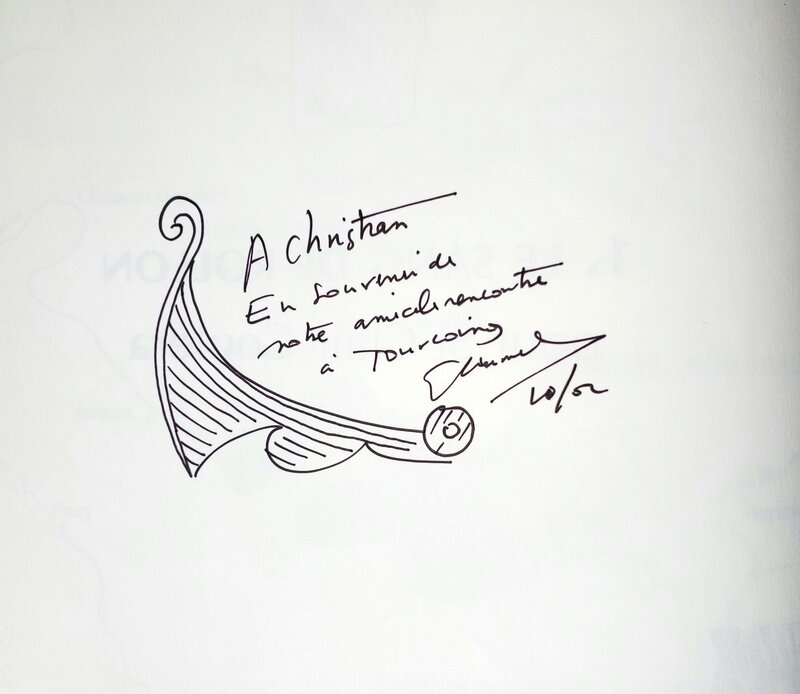 A Christian
En souvenir de
notre amicale rencontre
à Tourcoing
10/02